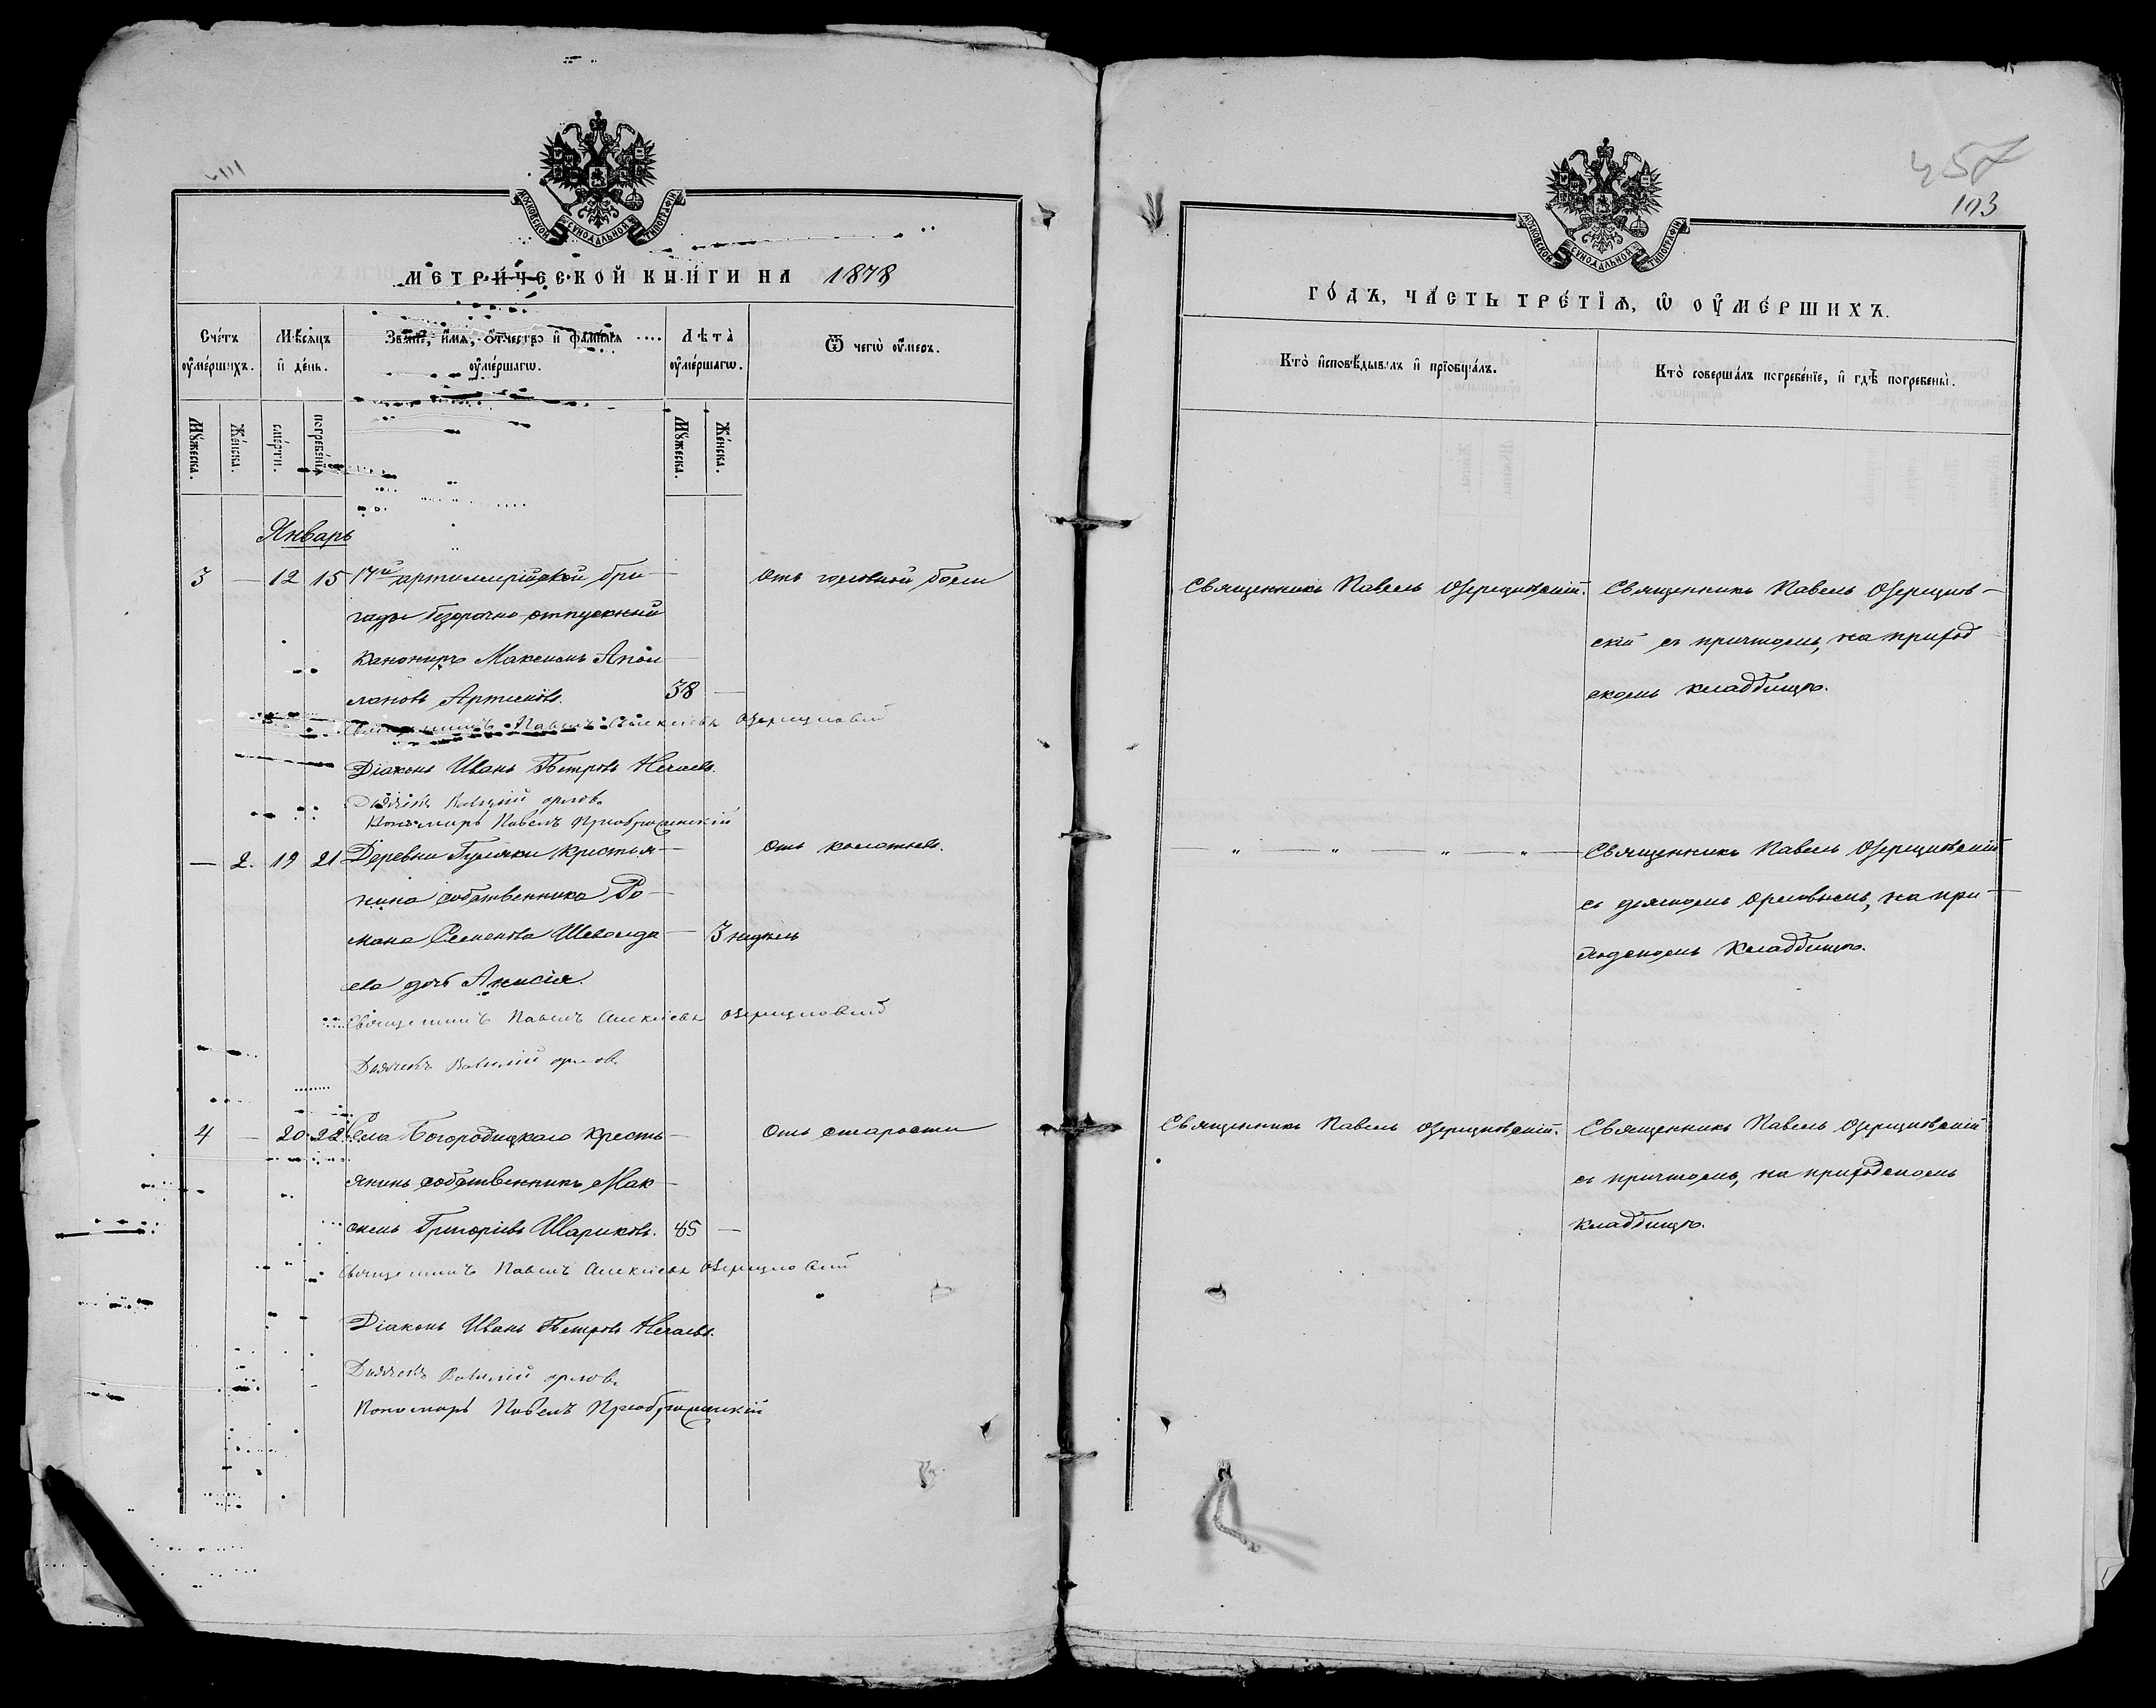 МОСКОВСКОЙ СѴНОДАЛЬНОЙ ТИПОГРАФІИ
МЕТРИ́ЧЕСКОЙ КНИ́ГИ НА 1878
Сче́тъ оу҆ме́ршихъ.
Мѣ́сяцъ и҆ де́нь.
Зва́нїе, и҆́мѧ, ѻ҆́тчество и҆ фами́лїѧ оу҆ме́ршагѡ.
Лѣ́та оу҆ме́ршагѡ.
Ѿ чегѡ̀ оу҆́меръ.
Мꙋ́жеска.
Же́нска.
сме́рти.
погребе́нїѧ
Мꙋ́жеска.
Же́нска.
Январь
3 — 12 15 17й артиллерійской бри- отъ головной боли
гады безсрочно отпускный
Канониръ Максимъ Апол-
лоновъ Артемовъ. 38 —
Священникъ Павелъ Алексѣевъ Озерецковскій
Діаконъ Иванъ Петровъ Нечаевъ.
Дьячекъ Василій Орловъ
Пономарь Павелъ Преображенскій
— 2. 19 21 Деревни Гуляки крестья- отъ колотьевъ.
нина собственника Ро-
мана Семенова — 3 недѣль
ева дочь Анисія.
Священникъ Павелъ Алексѣевъ Озерецковскій
Дьячекъ Василій Орловъ
4 — 20 22 Села Богородицкаго кресть- отъ старости
янинъ собственникъ Мак-
симъ Григорьевъ Шариковъ. 85 —
Священникъ Павелъ Алексѣевъ Озерецковскій
Діаконъ Иванъ Петровъ Нечаевъ.
Дьячекъ Василій Орловъ
Пономарь Павелъ Преображенскій
457
103
МОСКОВСКОЙ СѴНОДАЛЬНОЙ ТИПОГРАФІИ
ГО́ДЪ, ЧА́СТЬ ТРЕ́ТЇѦ, Ѡ҆ ОУ҆МЕ́РШИХЪ.
Кто̀ и҆сповѣ́дывалъ и҆ прїѡбща́лъ.
Кто̀ соверша́лъ погребе́нїе, и҆ гдѣ̀ погребены̀.
Священникъ Павелъ Озерецковскій. Священникъ Павелъ Озерецков-
скій съ причтомъ, на приход
скомъ кладбищѣ.
— „ — „ — „ — „ — Священникъ Павелъ Озерецковскій
съ дьячкомъ Орловымъ, на при-
ходскомъ кладбищѣ.
Священникъ Павелъ Озерецковскій. Священникъ Павелъ Озерецковскій
съ причтомъ, на приходскомъ
кладбищѣ.